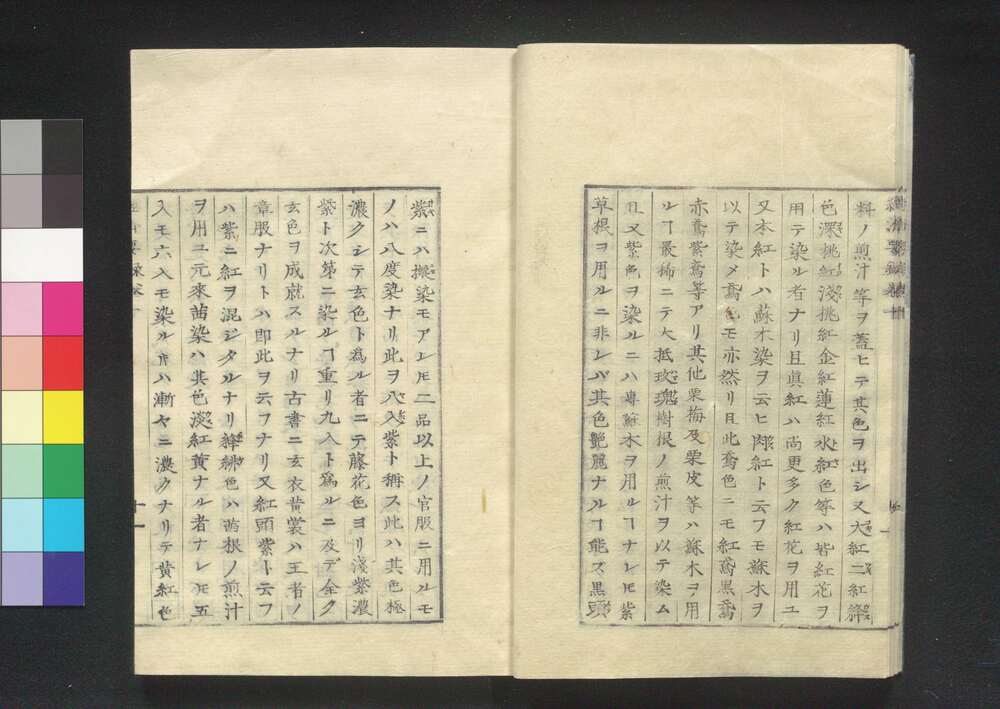 料ノ煎汁等ヲ蓋ヒテ其色ヲ出シ又大紅ニ紅緋
色深桃紅淺桃紅金紅蓮紅水紅色等ハ皆紅花ヲ
用テ染ル者ナリ且眞紅ハ尚更多ク紅花ヲ用ユ
又本紅トハ蘇木染ヲ云ヒ肉紅ト云フモ蘇木ヲ
以テ染メ鳶色モ亦然リ且此鳶色ニモ紅鳶黒鳶
赤鳶紫鳶等アリ其他栗梅及栗皮等ハ蘇木ヲ用
ルヿ最稀ニテ大抵玫瑰樹根ノ煎汁ヲ以テ染ム
且又紫色ヲ染ルニハ專蘇木ヲ用ルヿナレ𪜈紫
草根ヲ用ルニ非レバ其色艶麗ナルヿ能ズ黒頭
紫ニハ擬染モアレ𪜈二品以上ノ官服ニ用ルモ
ノハ八度染ナリ此ヲ八入紫ト稱ス此ハ其色極
濃クシテ玄色ト為ル者ニテ藤花色ヨリ淺紫濃
紫ト次第ニ染ルヿ重リ九入ト為ルニ及デ全ク
玄色ヲ成就スルナリ古書ニ玄衣黄裳ハ王者ノ
章服ナリトハ即此ヲ云フナリ又紅頭紫ト云フ
ハ紫ニ紅ヲ混ジタルナリ絳緋色ハ茜根ノ煎汁
ヲ用ユ元來茜染ハ其色淡紅黄ナル者ナレ𪜈五
入モ六入モ染ル𪜈ハ漸々ニ濃クナリテ黄紅色
十一